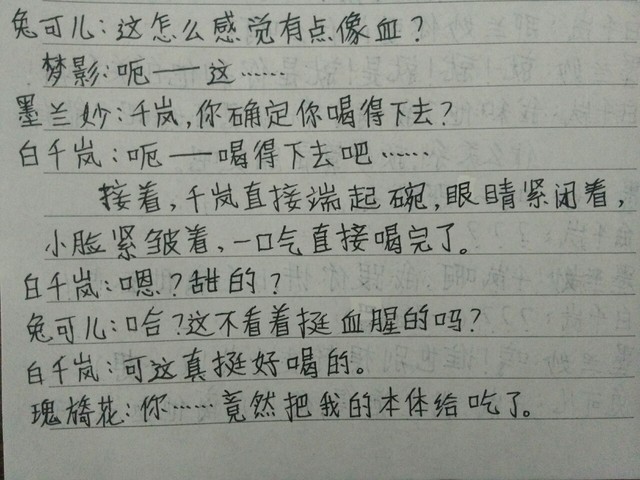 兔可儿:这怎么感觉有点像血?
梦影:呃——这……
墨兰妙:千岚,你确定你喝得下去?
白千岚:呃——喝得下去吧……
接着,千岚直接端起碗,眼睛紧闭着,
小脸紧皱着,一口气直接喝完了。
白千岚:嗯?甜的?
兔可儿:哈?这不看着挺血腥的吗?
白千岚:可这真挺好喝的。
瑰旖花:你……竟然把我的本体给吃了。